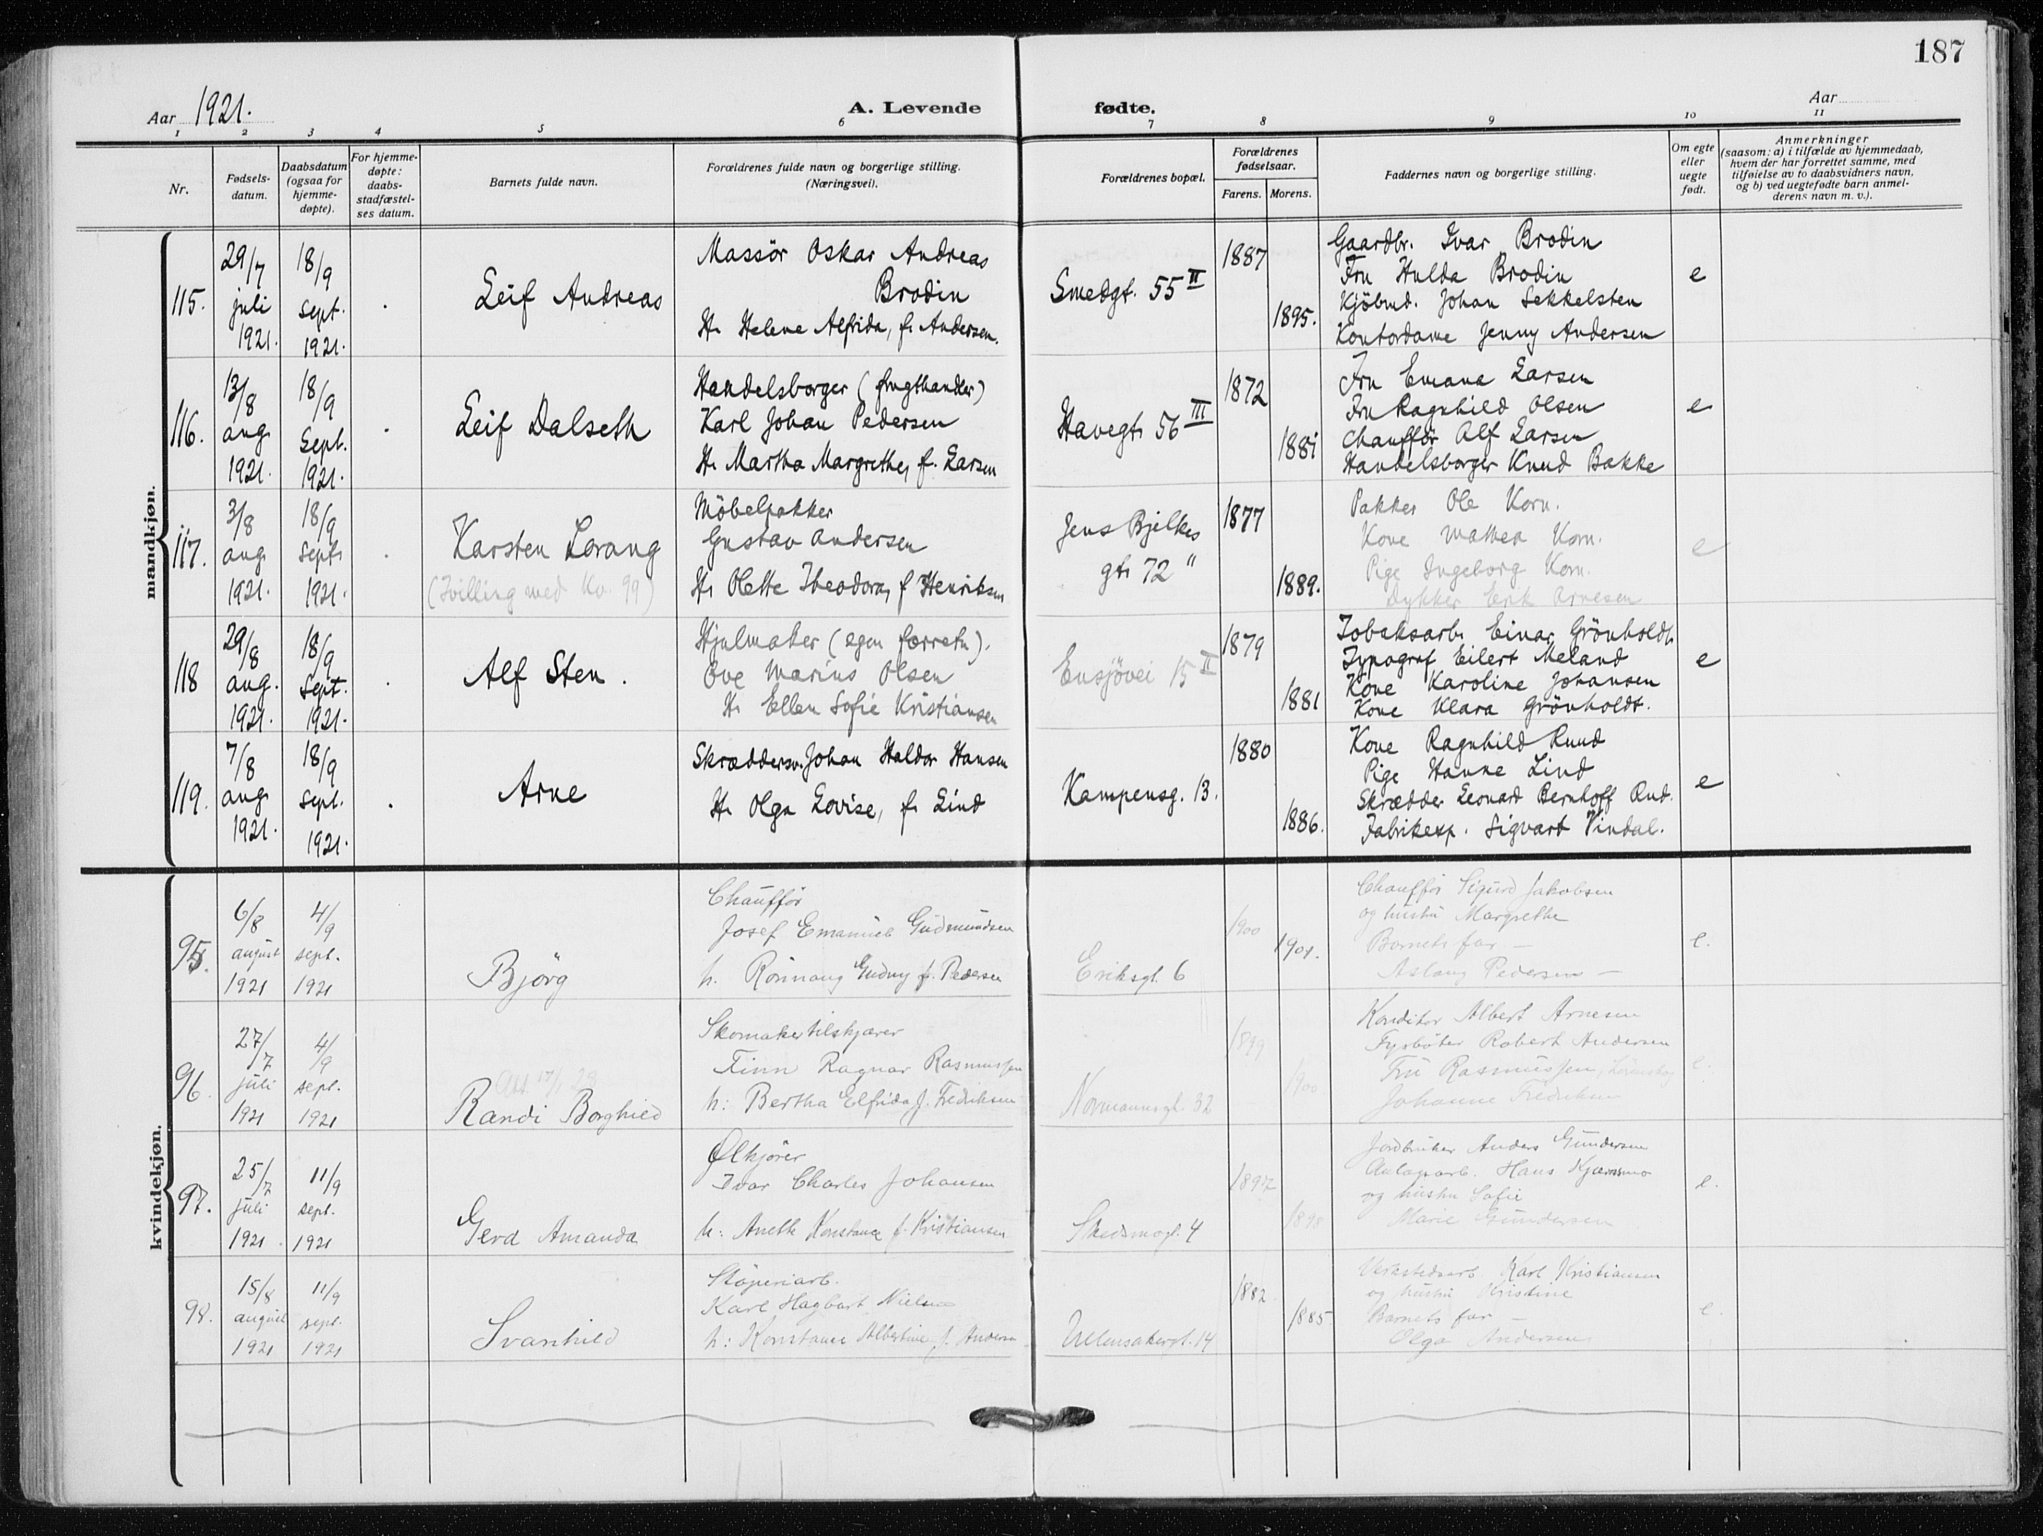 187
Aar 1921.
A. Levende fødte.
Aar
1 2 3 4 5 6 7 8 9 10 11
Nr.
Fødsels-
datum.
Daabsdatum
(ogsaa for
hjemme-
døpte).
For hjemme-
døpte:
daabs-
stadfæstel-
ses datum.
Barnets fulde navn.
Forældrenes fulde navn og borgerlige stilling.
(Næringsvei).
Forældrenes bopæl.
Forældrenes
fødselsaar.
Farens. Morens.
Faddernes navn og borgerlige stilling.
Om egte
eller
uegte
født.
Anmerkninger
(saasom: a) i tilfælde av hjemmedaab,
hvem der har forrettet samme, med
tilføielse av to daabsvidners navn,
og b) ved uegtefødte barn anmel-
derens navn m. v.).
mandkjøn.
115.
29/7
juli
1921.
18/9
sept.
1921.
Leif Andreas
Massør Oskar Andreas
Brodin
H. Helene Alfrida, f. Andersen.
Smedgt. 55 II
1887
1895.
Gaardbr. Ivar Brodin
Fru Hulda Brodin
Kjöbmd. Johan Sekkelsten
Kontordame Jenny Andersen
e
116.
13/8
aug.
1921.
18/9
Sept.
1921.
Leif Dalseth
Handelsborger (frugthandler)
Karl Johan Pedersen
H. Martha Margrethe, f. Larsen
Havegt. 56 III
1872
1881
Fru Emana Larsen
Fru Ragnhild Olsen
Chaufför Alf Larsen
Handelsborger Knud Bakke
e
117.
3/8
aug.
1921.
18/9
Sept.
1921.
Karsten Lorang
(Tvilling med Kv. 99)
Möbelpakker
Gustav Andersen
H. Olette Theodora, f. Henriksen
Jens Bjelkes
gt. 72 "
1877
1889.
Pakker Ole Korn.
Kone Mathea Korn.
Pige Ingeborg Korn.
Dykker Erik Arnesen
e
118
29/8
aug.
1921.
18/9
Sept.
1921.
Alf Sten.
Hjulmaker (egen forretn.).
Ove Marius Olsen
H. Ellen Sofie Kristiansen
Ensjövei 15 II
1879
1881
Tobaksarb. Einar Grönholdt.
Typograf Eilert Meland
Kone Karoline Johansen
Kone Klara Grönholdt.
e
119.
7/8
aug.
1921.
18/9
Sept.
1921.
Arne
Skræddersv. Johan Haldor Hansen
H. Olga Lovise, f. Lind
Kampensg. 13.
1880
1886.
Kone Ragnhild Ruud
Pige Hanne Lind
Skrædder Leonard Bernhoff Rud.
Fabrikexp. Sigvart Vindal.
e
kvindekjøn.
95.
6/8
august
1921
4/9
sept.
1921
Björg
Chaufför
Josef Emanuel Gudmundsen
h. Rönnaug Gudny f. Pedersen
Eriksgt. 6
1900
1901.
Chaufför Sigurd Jakobsen
og hustru Margrethe
Barnets far. —
Aslaug Pedersen —
e.
96.
27/7
juli
1921
4/9
sept.
1921
Randi Borghild
Skomaker tilskjærer
Finn Ragnar Rasmussen
h: Bertha Elfrida f. Fredriksen
Normannsgt. 32
1899
1900
Konditor Albert Arnesen
Fyrböter Robert Andersen
Fru Rasmussen,
Johanne Fredriksen
e.
97.
25/7
juli
1921.
11/9
sept.
1921
Gerd Amanda
Ølkjörer
Ivar Charles Johansen
h: Anette Konstance f. Kristiansen
Skedsmogt. 4
1897
1898
Jordbruker Anders Gundersen
Anlægsarb. Hans Kjærnsmo
og hustru Sofie
Marie Gundersen
e.
98.
15/8
august
1921
11/9
sept.
1921
Svanhild
Stöperiarb.
Karl Hagbart Nielsen
h: Konstance Albertine f. Andersen
Ullensakergt. 14
1882
1885
Verkstedsarb. Karl Kristiansen
og hustru Kristine
Barnets far —
Olga Andersen
e.